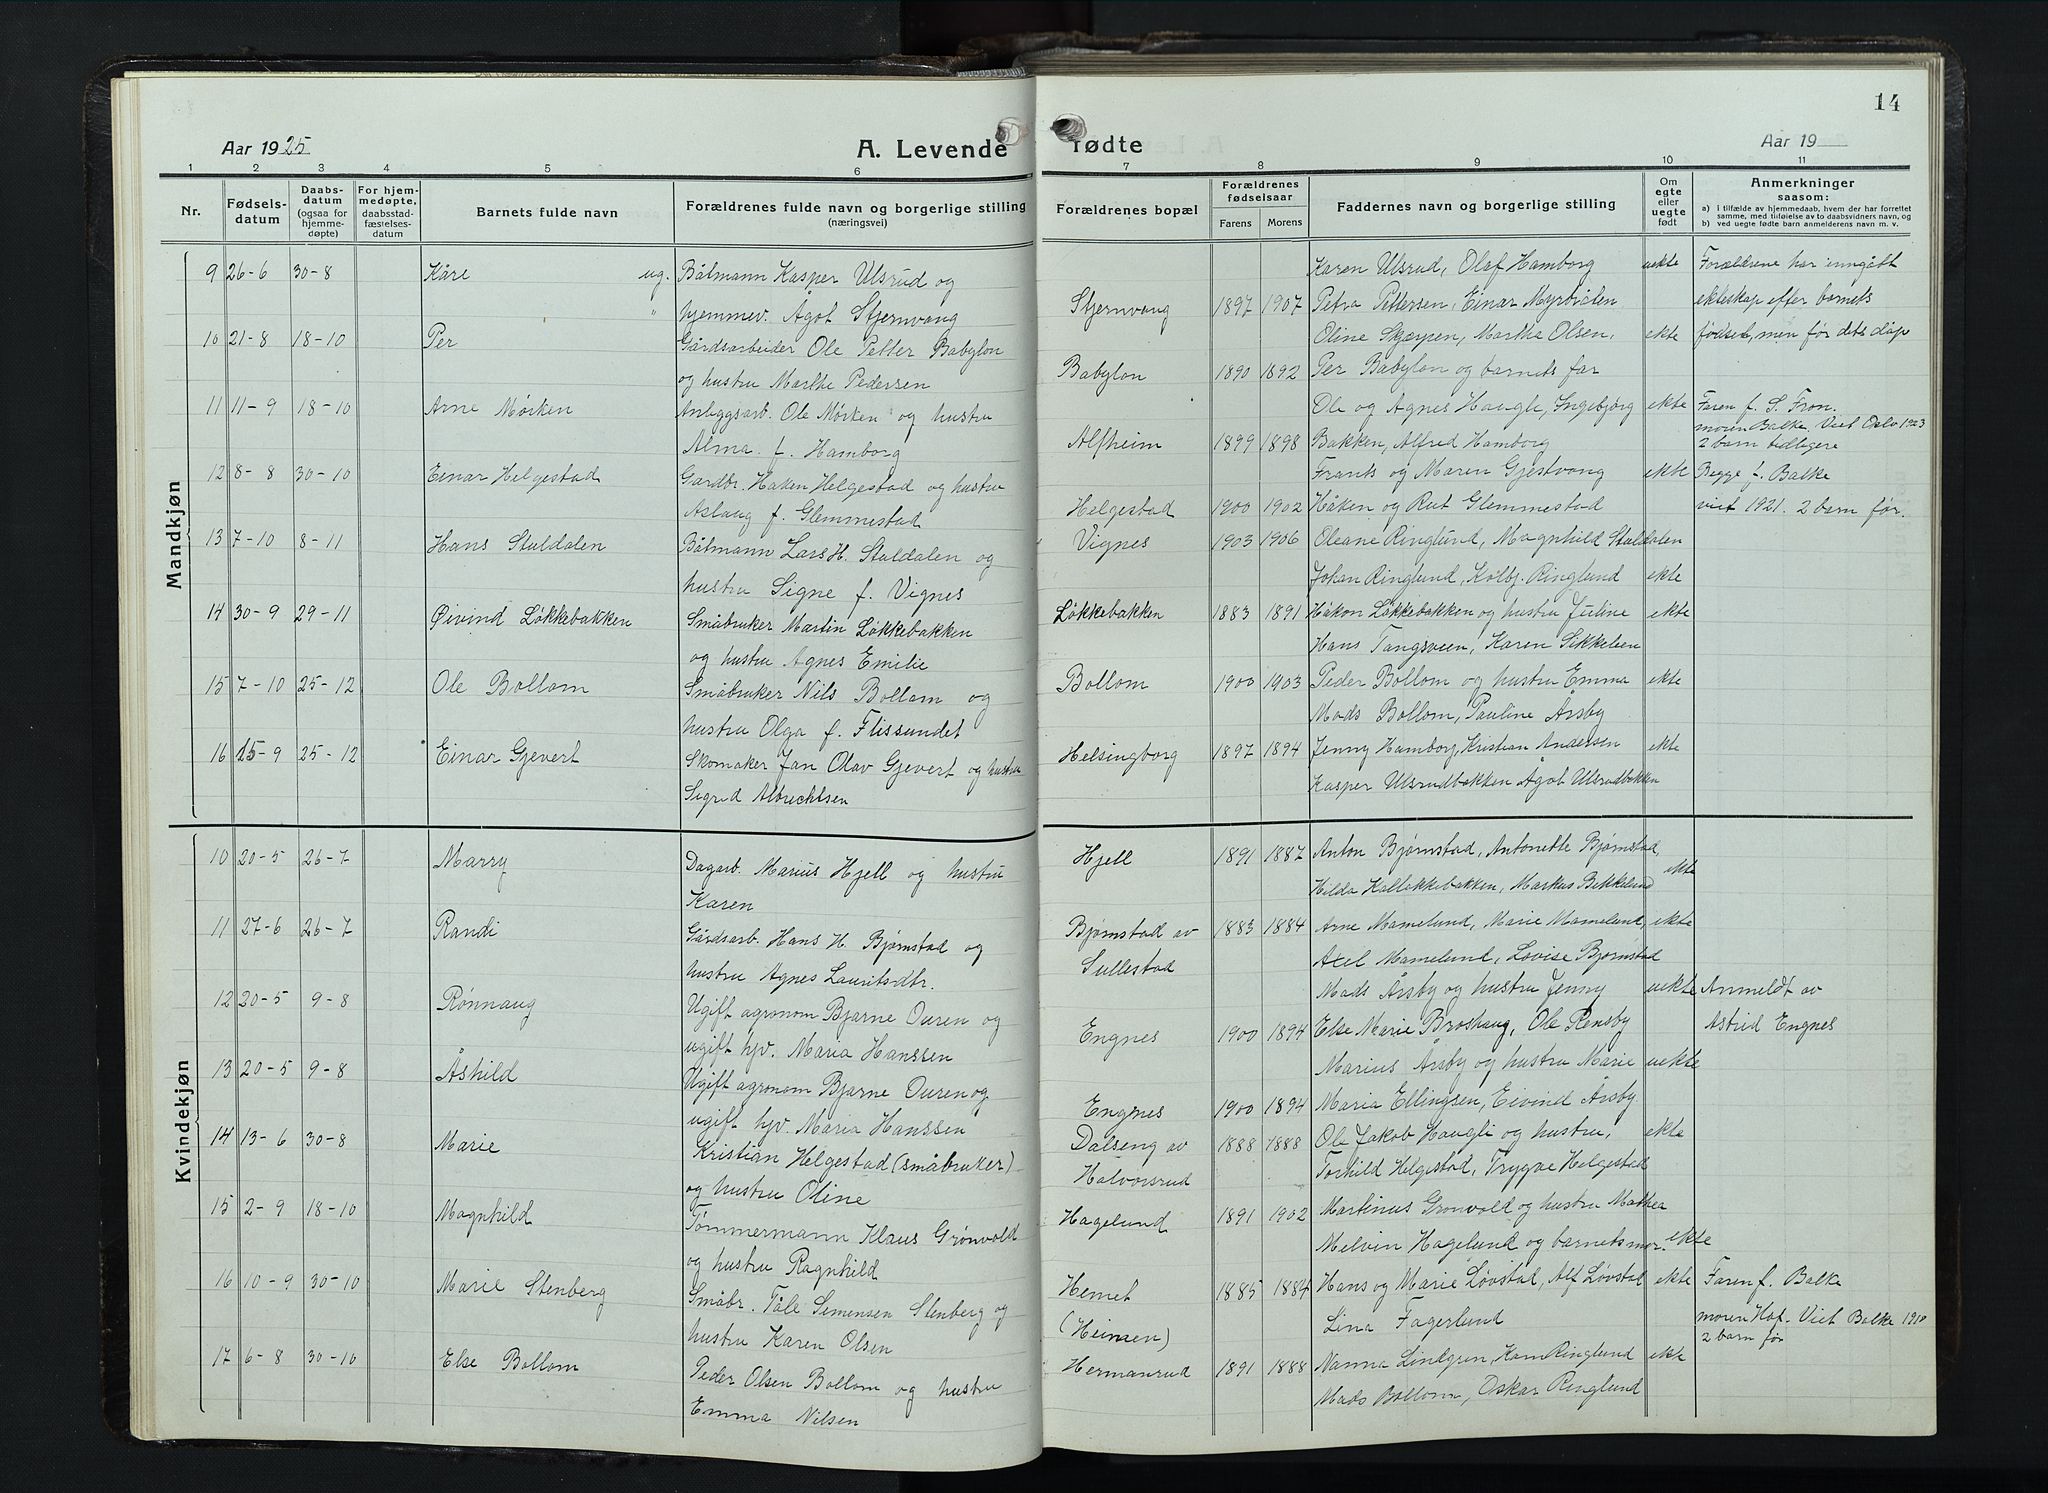 Aar 1925
A. Levende
1 2 3 4 5 6
Nr.
Fødsels-
datum
Daabs-
datum
(ogsaa for
hjemme-
døpte)
For hjem-
medøpte,
daabsstad-
fæstelses-
datum
Barnets fulde navn
Forældrenes fulde navn og borgerlige stilling
(næringsvei)
Mandkjøn
9 26-6 30-8 Kåre ug. Båtmann Kasper Ulsrud og
" hjemmev. Ågot Stjernvang
10 21-8 18-10 Per Gårdsarbeider Ole Petter Babylon
og hustru Marthe Pedersen
11 11-9 18-10 Arne Mørken Anleggsarb. Ole Mørken og hustru
Alma f. Hamborg
12 8-8 30-10 Einar Helgestad Gardbr. Haken Helgestad og hustru
Aslaug f. Glemmestad
13 7-10 8-11 Hans Stuldalen Båtmann Lars H. Stuldalen og
hustru Signe f. Vignes
14 30-9 29-11 Øivind Løkkebakken Småbruker Martin Løkkebakken
og hustru Agnes Emilie
15 7-10 25-12 Ole Bollom Småbruker Nils Bollom og
hustru Olga f. Flissundet
16 15-9 25-12 Einar Gjevert Skomaker Jan Olav Gjevert og hustru
Sigrid Albrechtsen
Kvindekjøn
10 20-5 26-7 Marry Dagarb. Marius Hjell og hustru
Karen
11 27-6 26-7 Randi Gårdsarb. Hans H. Bjørnstad og
hustru Agnes Lauritsdtr.
12 20-5 9-8 Rønnaug Ugift agronom Bjarne Ouren og
ugift hjv. Maria Hanssen
13 20-5 9-8 Åshild Ugift agronom Bjarne Ouren og
ugift hjv. Maria Hanssen
14 13-6 30-8 Marie Kristian Helgestad (småbruker)
og hustru Oline
15 2-9 18-10 Magnhild Tømmermann Klaus Grønvold
og hustru Ragnhild
16 10-9 30-10 Marie Stenberg Småbr. Tåle Semensen Stenberg og
hustru Karen Olsen
17 6-8 30-10 Else Bollom Peder Olsen Bollom og hustru
Emma Nilsen
14
fødte
Aar 19
7 8 9 10 11
Forældrenes bopæl
Forældrenes
fødselsaar
Farens Morens
Faddernes navn og borgerlige stilling
Om
egte
eller
uegte
født
Anmerkninger
saasom:
a) i tilfælde av hjemmedaab, hvem der har forrettet
samme, med tilføielse av to daabsvidners navn, og
b) ved uegte fødte barn anmelderens navn m. v.
Karen Ulsrud, Olaf Hamborg uekte Forældrene har inngått
Stjernvang 1897 1907 Petra Pettersen, Einar Myrvicten ekteskap efter barnets
Oline Skjærpen, Martha Olsen, ekte fødsel, men før dets dåp
Babylon 1890 1892 Per Babylon og barnets far
Ole og Agnes Haugle, Ingebjørg ekte Faren f. S. Fron.
moren Balke. Viet Oslo 1923
Alfheim 1899 1898 Bakken, Alfred Hamborg 2 barn tidligere
Frants og Maren Gjestvang ekte Begge f. Balke
Helgestad 1900 1902 Håken og Rut Glemmestad viet 1921. 2 barn før.
Vignes 1903 1906 Oleane Ringlund, Magnhild Stuldalen
Johan Ringlund, Kolbj. Ringlund ekte
Løkkebakken 1883 1891 Håkon Løkkebakken og hustru Juline ekte
Hans Tangsveen, Karen Sikkelsen
Bollom 1900 1903 Peder Bollom og hustru Emma ekte
Mads Bollom, Pauline Årsby
Helsingborg 1897 1894 Jenny Hamborg, Kristian Andersen ekte
Kasper Ulsrudbakken Ågot Ulsrudbakken
Hjell 1891 1887 Anton Bjørnstad, Antonette Bjørnstad, ekte
Hilda Kalløkkebakken, Markus Bekkelund
Bjørnstad av 1883 1884 Arne Mamelund, Marie Mamelund, ekte
Sullestad Axel Mamelund, Lovise Bjørnstad
Mads Årsby og hustru Jenny uekte Anmeldt av
Engnes 1900 1894 Else Marie Broshaug, Ole Rensby Astrid Engnes
Marius Årsby og hustru Marie uekte
Engnes 1900 1894 Maria Ellingsen, Eivind Årsby
Dalseng av 1888 1888 Ole Jakob Haugli og hustru, ekte
Halvorsrud Torhild Helgestad, Trygve Helgestad
Hagelund 1891 1902 Martinus Gronvold og hustru Mathea
Melvin Hagelund og barnets mor. ekte
Hemet 1885 1884 Hans og Marie Løvstal, Alf Lovstal ekte Faren f. Balke
(Heimen) Lina Fagerlund moren Hof. Viet Balke 1918
2 barn før
Hermanrud 1891 1888 Nanna Lindgren, Kam Ringlund ekte
Mads Bollom, Oskar Ringlund